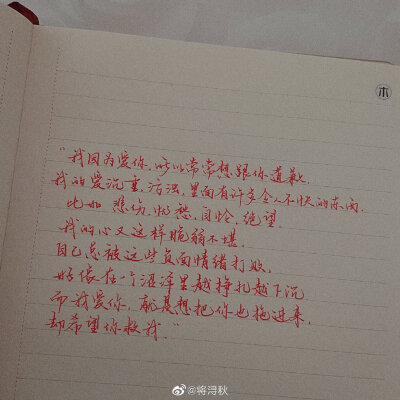 木
"我因为爱你，所以常常想跟你道歉，
我的爱沉重，污浊，里面有许多令人不快的东西，
比如 悲伤，忧愁，自怜，绝望。
我的心又这样脆弱不堪，
自己总被这些负面情绪打败，
好像在一个沼泽里越挣扎越下沉
而我爱你，就是想把你也拖进来，
却希望你救我。"
@将浔秋